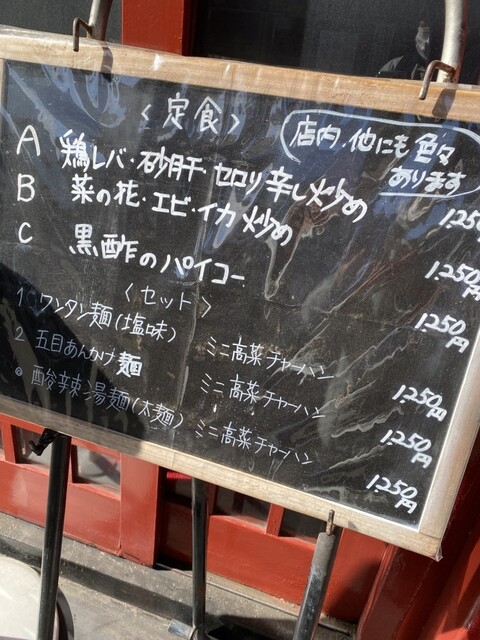 〈定食〉
店内、他にも色々
あります
A 鶏レバ・砂肝・セロリ辛し炒め 1250
B 菜の花・エビ・イカ炒め 1250円
C 黒酢のパイコー 1250円
〈セット〉
1 ワンタン麺(塩味) ミニ高菜チャーハン 1250円
2 五目あんかけ麺 ミニ高菜チャーハン 1250円
酸辣湯麺(太麺) ミニ高菜チャーハン 1250円